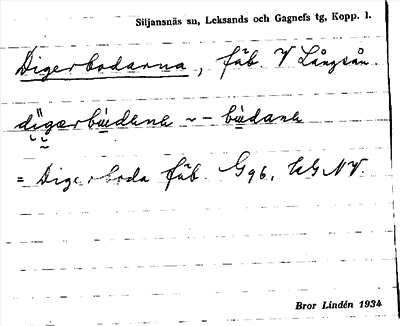 Siljansnäs sn, Leksands och Gagnefs tg, Kopp. l.
Digerbodarna, fäb. V Långsån.
= Digerboda fäb. G96, UGNV.
Bror Lindén 1934